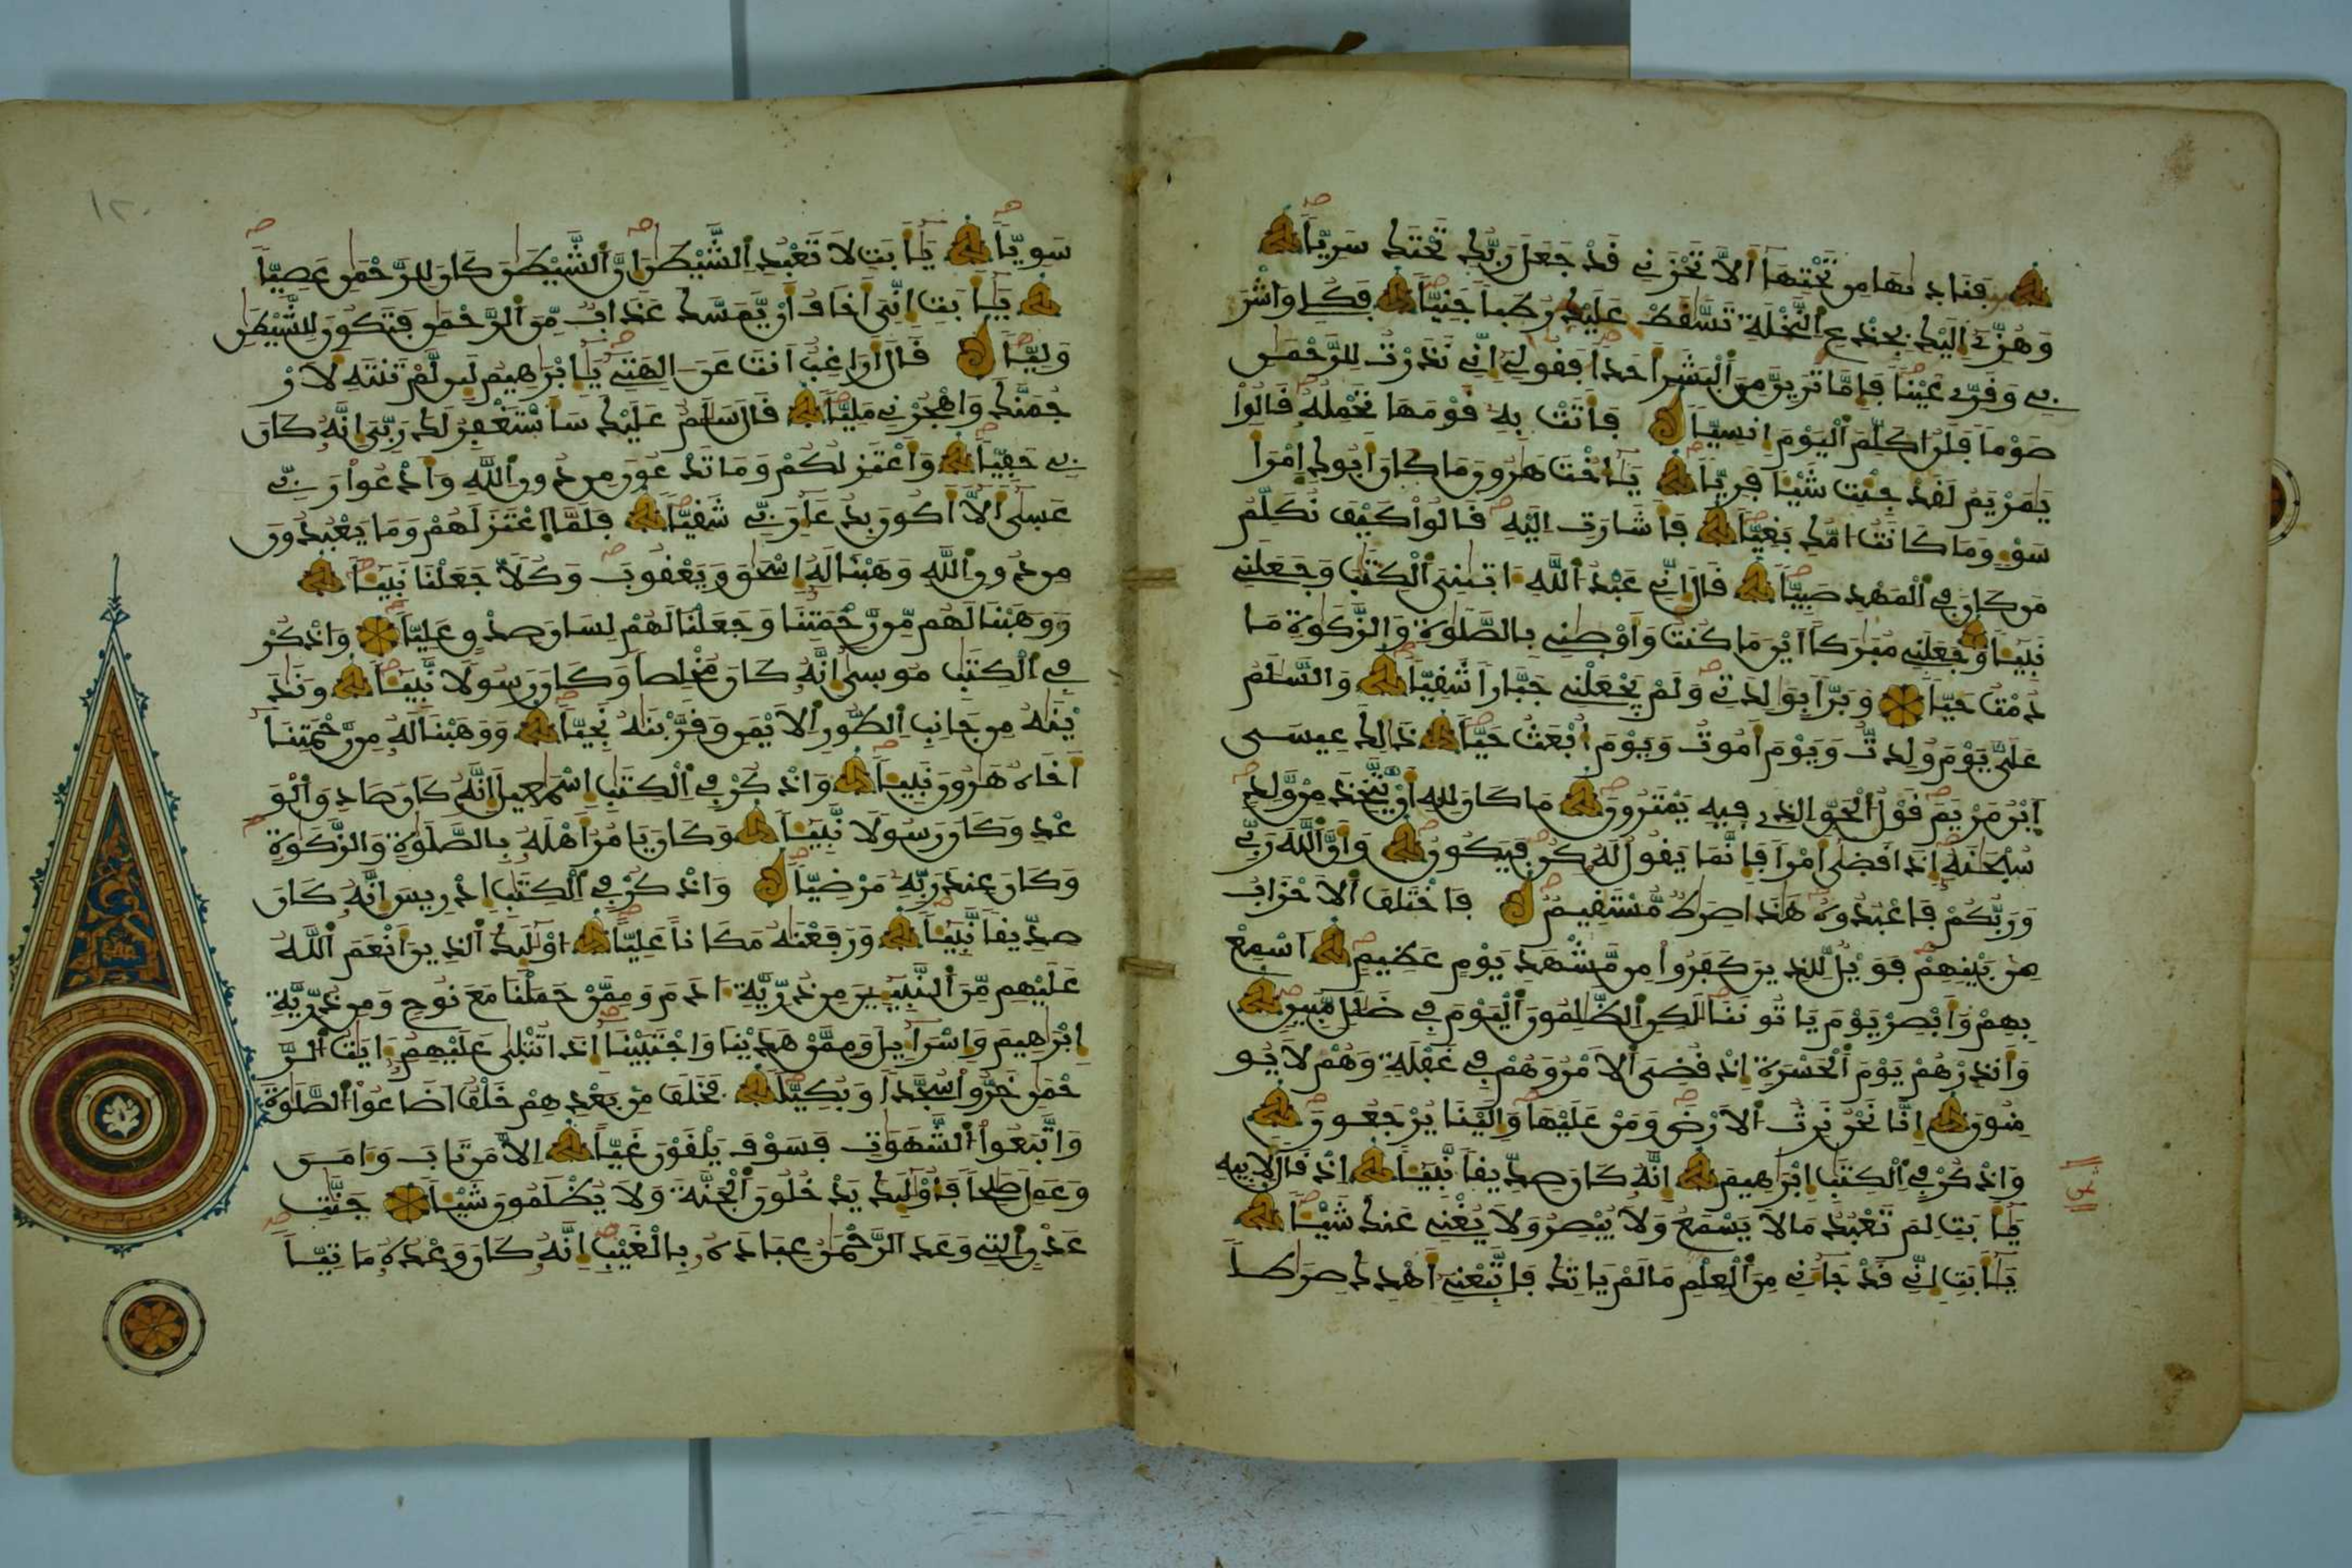 فَنَادٜىٰهَا مِن تَحْتِهَا أَلَّا تَحْزَنِے قَدْ جَعَلَ رَبُّكِ تَحْتَكِ سَرِيّاً
وَهُزِّے إِلَيْكِ بِجِذْعِ اِ۬لنَّخْلَةِ تَسَّٰقَطْ عَلَيْكِ رُطَباً جَنِيّاً فَكُلِے وَاشْرَ
بِے وَقَرِّے عَيْناً فَإِمَّا تَرَيِنَّ مِنَ اَ۬لْبَشَرِ أَحَداً فَقُولِےٓ إِنِّے نَذَرْتُ لِلرَّحْمَٰنِ
صَوْماً فَلَنُ ا۟كَلِّمَ اَ۬لْيَوْمَ إِنسِيّاً فَأَتَتْ بِهِۦ قَوْمَهَا تَحْمِلُهُۥ قَالُواْ
يَٰمَرْيَمُ لَقَدْ جِئْتِ شَيْـٔاً فَرِيّاً يَٰٓأُخْتَ هَٰرُونَ مَا كَانَ أَبُوكِ اِ۪مْرَأَ
سَوْءٍ وَمَا كَانَتُ ا۟مُّكِ بَغِيّاً فَأَشَارَتِ اِلَيْهِ قَالُواْ كَيْفَ نُكَلِّمُ
مَن كَانَ فِے اِ۬لْمَهْدِ صَبِيّاً قَالَ إِنِّے عَبْدُ اُ۬للَّهِ ءَاتٜىٰنِيَ اَ۬لْكِتَٰبَ وَجَعَلَنِے
نَبِيٓـٔاً وَجَعَلَنِے مُبَٰرَكاً اَيْنَ مَا كُنتُ وَأَوْصٜىٰنِے بِالصَّلَوٰةِ وَالزَّكَوٰةِ مَا
دُمْتُ حَيّاً وَبَرّاً بِوَٰلِدَتِے وَلَمْ يَجْعَلْنِے جَبَّاراً شَقِيّاً وَالسَّلَٰمُ
عَلَيَّ يَوْمَ وُلِدتُّ وَيَوْمَ أَمُوتُ وَيَوْمَ أُبْعَثُ حَيّاً ذَٰلِكَ عِيسَى
اَ۪بْنُ مَرْيَمَ قَوْلُ اُ۬لْحَقِّ اِ۬لذِے فِيهِ يَمْتَرُونَ مَا كَانَ لِلهِ أَنْ يَّتَّخِذَ مِنْ وَّلَدٍ
سُبْحَٰنَهُۥٓ إِذَا قَضٜىٰٓ أَمْراً فَإِنَّمَا يَقُولُ لَهُۥ كُن فَيَكُونُ وَأَنَّ اَ۬للَّهَ رَبِّے
وَرَبُّكُمْ فَاعْبُدُوهُ هَٰذَا صِرَٰطٌ مُّسْتَقِيمٌ فَاخْتَلَفَ اَ۬لَاحْزَابُ
مِنۢ بَيْنِهِمْ فَوَيْلٌ لِّلذِينَ كَفَرُواْ مِن مَّشْهَدِ يَوْمٍ عَظِيمٍ اَسْمِعْ
بِهِمْ وَأَبْصِرْ يَوْمَ يَاتُونَنَا لَٰكِنِ اِ۬لظَّٰلِمُونَ اَ۬لْيَوْمَ فِے ضَلَٰلٍ مُّبِينٍ
وَأَنذِرْهُمْ يَوْمَ اَ۬لْحَسْرَةِ إِذْ قُضِيَ اَ۬لَامْرُ وَهُمْ فِے غَفْلَةٍ وَهُمْ لَا يُو
مِنُونَ إِنَّا نَحْنُ نَرِثُ اُ۬لَارْضَ وَمَنْ عَلَيْهَا وَإِلَيْنَا يُرْجَعُونَ
وَاذْكُرْ فِے اِ۬لْكِتَٰبِ إِبْرَٰهِيمَ إِنَّهُۥ كَانَ صِدِّيقاً نَّبِيٓـٔاً اِذْ قَالَ لِأَبِيهِ
يَٰٓأَبَتِ لِمَ تَعْبُدُ مَا لَا يَسْمَعُ وَلَا يُبْصِرُ وَلَا يُغْنِے عَنكَ شَيْـٔاً
يَٰٓأَبَتِ إِنِّے قَدْ جَآءَنِے مِنَ اَ۬لْعِلْمِ مَا لَمْ يَاتِكَ فَاتَّبِعْنِےٓ أَهْدِكَ صِرَٰطاً
١٢٠
سَوِيّاً يَٰٓأَبَتِ لَا تَعْبُدِ اِ۬لشَّيْطَٰنَ إِنَّ اَ۬لشَّيْطَٰنَ كَانَ لِلرَّحْمَٰنِ عَصِيّاً
يَٰٓأَبَتِ إِنِّيَ أَخَافُ أَنْ يَّمَسَّكَ عَذَابٌ مِّنَ اَ۬لرَّحْمَٰنِ فَتَكُونَ لِلشَّيْطَٰنِ
وَلِيّاً قَالَ أَرَاغِبٌ اَنتَ عَنَ اٰلِهَتِے يَٰٓإِبْرَٰهِيمُ لَئِن لَّمْ تَنتَهِ لَأَرْ
جُمَنَّكَ وَاهْجُرْنِے مَلِيّاً قَالَ سَلَٰمٌ عَلَيْكَ سَأَسْتَغْفِرُ لَكَ رَبِّيَ إِنَّهُۥ كَانَ
بِے حَفِيّاً وَأَعْتَزِلُكُمْ وَمَا تَدْعُونَ مِن دُونِ اِ۬للَّهِ وَأَدْعُواْ رَبِّے
عَسٜىٰٓ أَلَّآ أَكُونَ بِدُعَآءِ رَبِّے شَقِيّاً فَلَمَّا اَ۪عْتَزَلَهُمْ وَمَا يَعْبُدُونَ
مِن دُونِ اِ۬للَّهِ وَهَبْنَا لَهُۥٓ إِسْحَٰقَ وَيَعْقُوبَ وَكُلّاً جَعَلْنَا نَبِيٓـٔاً
وَوَهَبْنَا لَهُم مِّن رَّحْمَتِنَا وَجَعَلْنَا لَهُمْ لِسَانَ صِدْقٍ عَلِيّاً وَاذْكُرْ
فِے اِ۬لْكِتَٰبِ مُوسٜىٰٓ إِنَّهُۥ كَانَ مُخْلِصاً وَكَانَ رَسُولاً نَّبِيٓـٔاً وَنَٰدَ
يْنَٰهُ مِن جَانِبِ اِ۬لطُّورِ اِ۬لَايْمَنِ وَقَرَّبْنَٰهُ نَجِيّاً وَوَهَبْنَا لَهُۥ مِن رَّحْمَتِنَآ
أَخَاهُ هَٰرُونَ نَبِيٓـٔاً وَاذْكُرْ فِے اِ۬لْكِتَٰبِ إِسْمَٰعِيلَ إِنَّهُۥ كَانَ صَادِقَ اَ۬لْوَ
عْدِ وَكَانَ رَسُولاً نَّبِيٓـٔاً وَكَانَ يَامُرُ أَهْلَهُۥ بِالصَّلَوٰةِ وَالزَّكَوٰةِ
وَكَانَ عِندَ رَبِّهِۦ مَرْضِيّاً وَاذْكُرْ فِے اِ۬لْكِتَٰبِ إِدْرِيسَ إِنَّهُۥ كَانَ
صِدِّيقاً نَّبِيٓـٔاً وَرَفَعْنَٰهُ مَكَاناً عَلِيّاً اُوْلَٰٓئِكَ اَ۬لذِينَ أَنْعَمَ اَ۬للَّهُ
عَلَيْهِم مِّنَ اَ۬لنَّبِيٓـِٕۧنَ مِن ذُرِّيَّةِ ءَادَمَ وَمِمَّنْ حَمَلْنَا مَعَ نُوحٍ وَمِن ذُرِّيَّةِ
إِبْرَٰهِيمَ وَإِسْرَآءِيلَ وَمِمَّنْ هَدَيْنَا وَاجْتَبَيْنَآ إِذَا تُتْلٜىٰ عَلَيْهِمُۥٓ ءَايَٰتُ اُ۬لرَّ
حْمَٰنِ خَرُّواْ سُجَّداً وَبُكِيّاً فَخَلَفَ مِنۢ بَعْدِهِمْ خَلْفٌ اَضَاعُواْ اُ۬لصَّلَوٰةَ
وَاتَّبَعُواْ اُ۬لشَّهَوَٰتِ فَسَوْفَ يَلْقَوْنَ غَيّاً اِلَّا مَن تَابَ وَءَامَنَ
وَعَمِلَ صَٰلِحاً فَأُوْلَٰٓئِكَ يَدْخُلُونَ اَ۬لْجَنَّةَ وَلَا يُظْلَمُونَ شَيْـٔاً جَنَّٰتِ
عَدْنٍ اِ۬لتِے وَعَدَ اَ۬لرَّحْمَٰنُ عِبَادَهُۥ بِالْغَيْبِ إِنَّهُۥ كَانَ وَعْدُهُۥ مَاتِيّاً